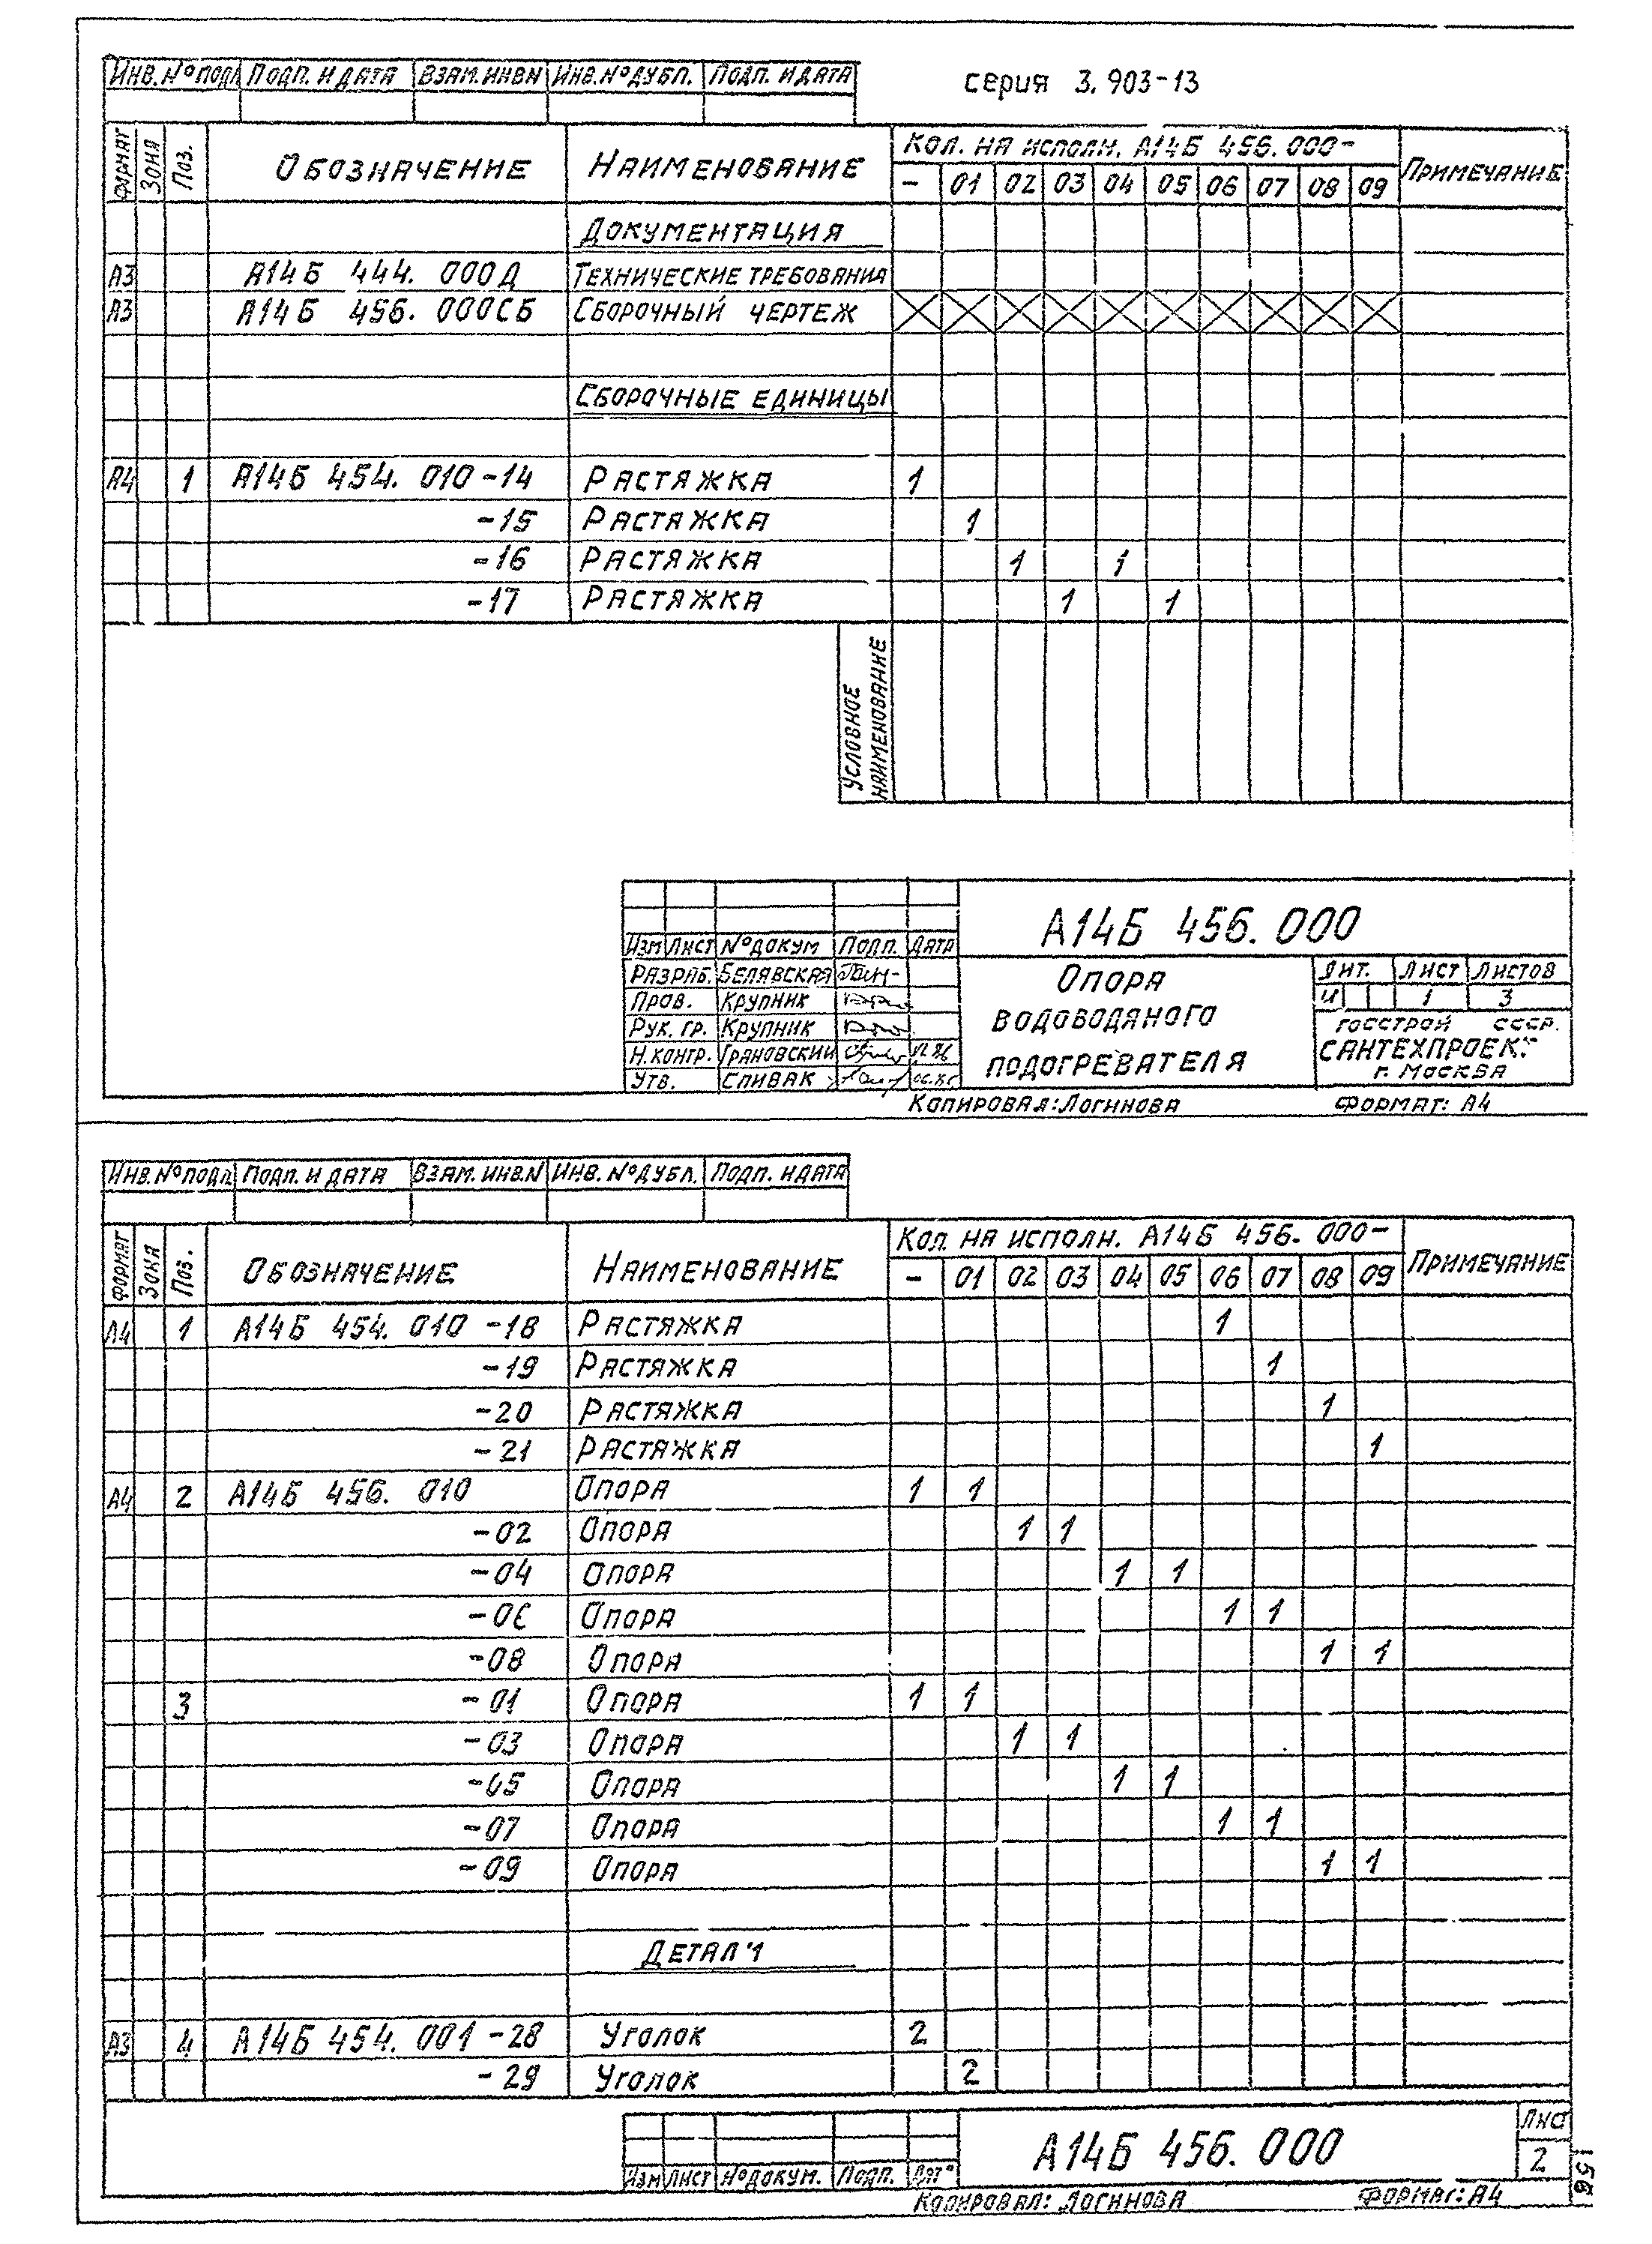 серия 3.903-13
Инв. № подл Подп. и дата Взам. инв N Инв. № дубл. Подп. и дата
Формат Зона Поз. Обозначение Наименование Кол. на исполн. А14Б 456.000- Примечание
- 01 02 03 04 05 06 07 08 09
Документация
А3 А14Б 444.000Д Технические требования
А3 А14Б 456.000СБ Сборочный чертеж
Сборочные единицы
А4 1 А14Б 454.010-14 Растяжка 1
-15 Растяжка 1
-16 Растяжка 1 1
-17 Растяжка 1 1
Условное наименование
А14Б 456.000
Изм Лист № докум Подп. Дата
Разраб. Белявская
Пров. Крупник
Рук. гр. Крупник
Н. контр. Грановский
Утв. Спивак
Опора
водоводяного
подогревателя
Лит. Лист Листов
И 1 3
Госстрой СССР.
Сантехпроект
г. Москва
Копировал: Логинова Формат: А4
Инв. № подл Подп. и дата Взам. инв. N Инв. № дубл. Подп. и дата
Формат Зона Поз. Обозначение Наименование Кол. на исполн. А14Б 456.000- Примечание
- 01 02 03 04 05 06 07 08 09
А4 1 А14Б 454.010-18 Растяжка 1
-19 Растяжка 1
-20 Растяжка 1
-21 Растяжка 1
А4 2 А14Б 456.010 Опора 1 1
-02 Опора 1 1
-04 Опора 1 1
-06 Опора 1 1
-08 Опора 1 1
3 -01 Опора 1 1
-03 Опора 1 1
-05 Опора 1 1
-07 Опора 1 1
-09 Опора 1 1
Детали
А3 4 А14Б 454.001-28 Уголок 2
-29 Уголок 2
А14Б 456.000
Лист
2
Изм Лист № докум. Подп. Дат
Копировал: Логинова Формат: А4
156